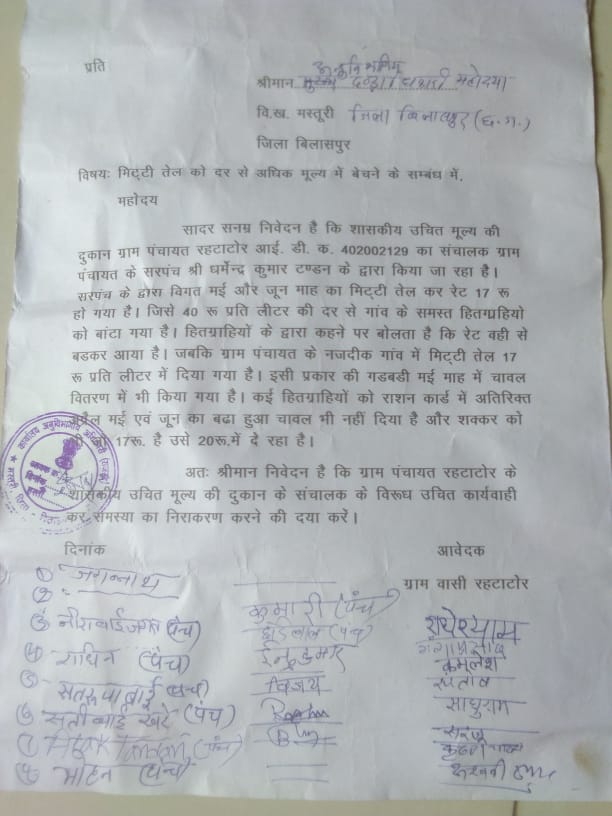 प्रति
श्रीमान महोदया
वि.ख. मस्तूरी जिला बिलासपुर (छ.ग.)
जिला बिलासपुर
विषयः मिट्टी तेल को दर से अधिक मूल्य में बेचने के सम्बंध में.
महोदय
सादर सनम्र निवेदन है कि शासकीय उचित मूल्य की
दुकान ग्राम पंचायत रहटाटोर आई. डी. क. 402002129 का संचालक ग्राम
पंचायत के सरपंच श्री धर्मेन्द्र कुमार टण्डन के द्वारा किया जा रहा है।
सरपंच के द्वारा विगत मई और जून माह का मिट्टी तेल कर रेट 17 रू
हो गया है। जिसे 40 रू प्रति लीटर की दर से गांव के समस्त हितग्रहियो
को बांटा गया है। हितग्राहियों के द्वारा कहने पर बोलता है कि रेट वही से
बडकर आया है। जबकि ग्राम पंचायत के नजदीक गांव में मिट्टी तेल 17
रू प्रति लीटर में दिया गया है। इसी प्रकार की गडबडी मई माह में चावल
वितरण में भी किया गया है। कई हितग्राहियों को राशन कार्ड में अतिरिक्त
मई एवं जून का बढा हुआ चावल भी नहीं दिया है और शक्कर को
17रू. है उसे 20रू.में दे रहा है।
अतः श्रीमान निवेदन है कि ग्राम पंचायत रहटाटोर के
शासकीय उचित मूल्य की दुकान के संचालक के विरूध उचित कार्यवाही
कर समस्या का निराकरण करने की दया करें।
दिनांक आवेदक
ग्राम वासी रहटाटोर
① जगन्नाथ
② कुमारी (पंच)
③ (पंच) राधेश्याम
④ (पंच) गंगाप्रसाद
कमलेश
⑤ विजय
⑥ (पंच) साधुराम
⑦ Tandan (पंच)
⑧ मोहन (पन्च)